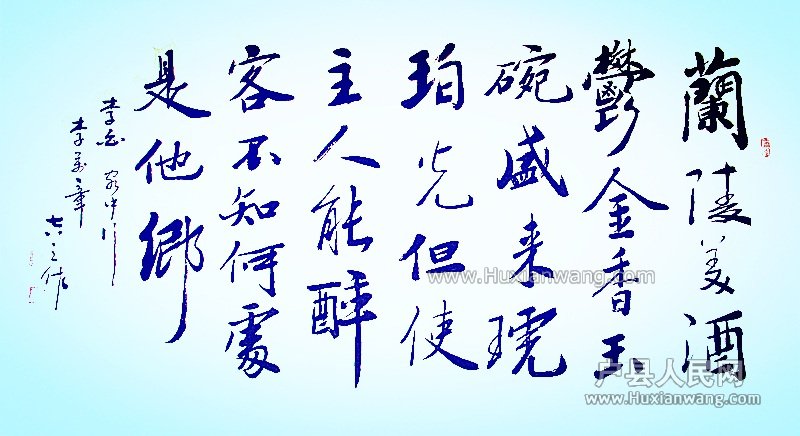 蘭陵美酒
鬱金香玉
碗盛来琥
珀光但使
主人能醉
客不知何處
是他鄉
李白 客中行
李
章
之作
www.Huxianwang.com
户县人民网
www.Huxianwang.com